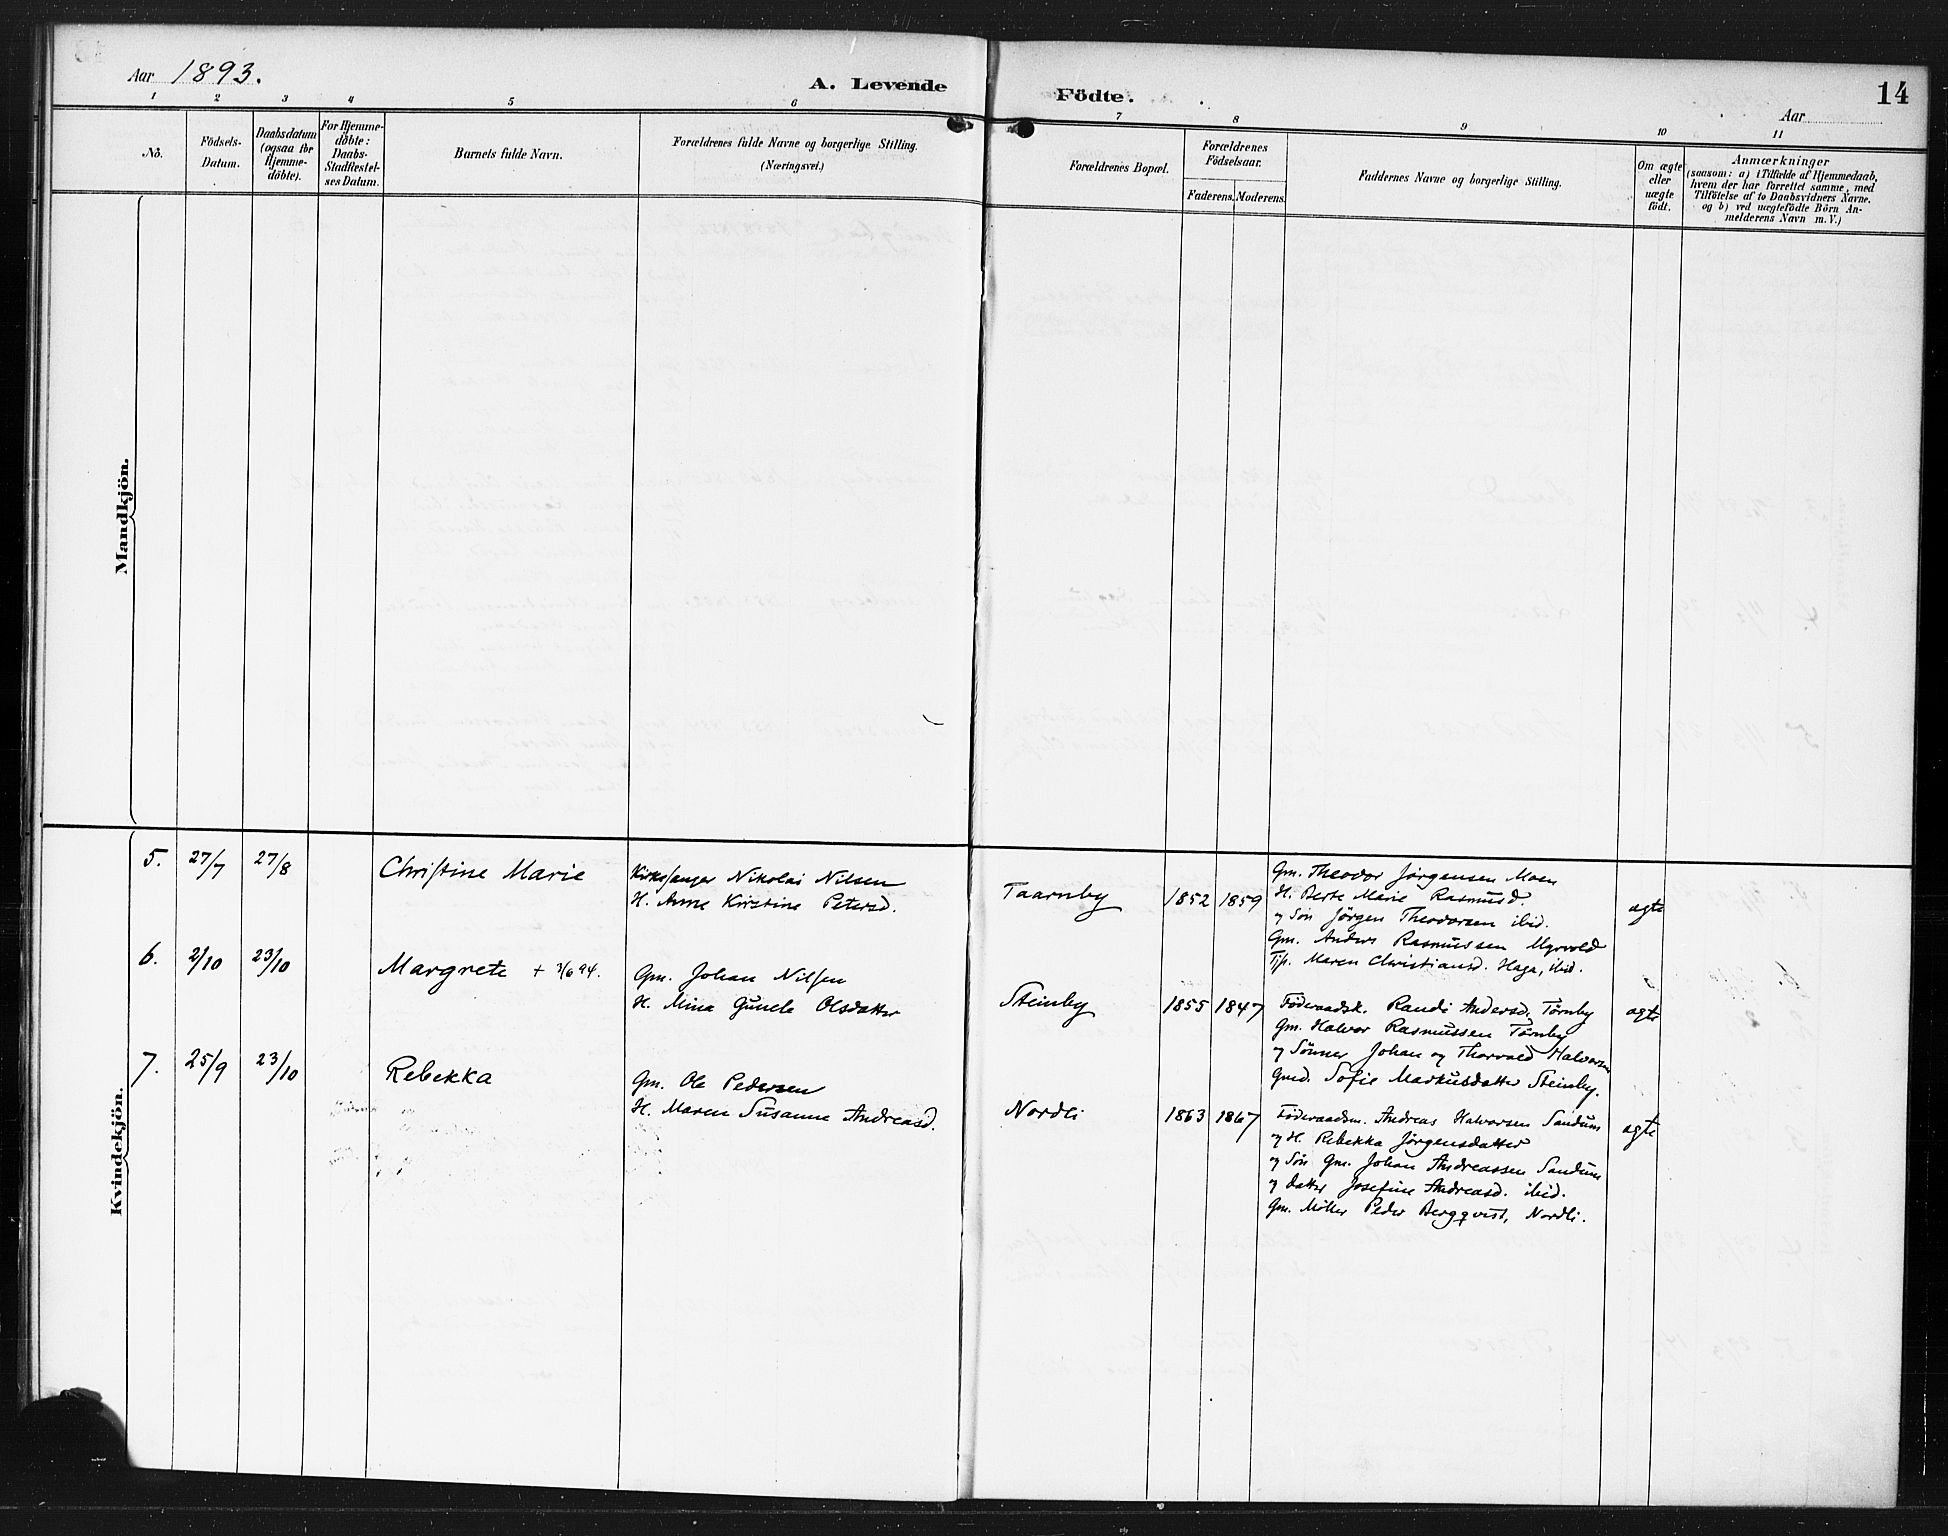 Aar 1893.
A. Levende Födte.
14
Aar
1 2 3 4 5 6 7 8 9 10 11
No.
Födsels-
Datum.
Daabsdatum
(ogsaa for
Hjemme-
döbte).
For Hjemme-
döbte:
Daabs-
Stadfæstel-
ses Datum.
Barnets fulde Navn.
Forældrenes fulde Navne og borgerlige Stilling.
(Næringsvei.)
Forældrenes Bopæl.
Forældrenes
Födselsaar.
Faderens. Moderens.
Faddernes Navne og borgerlige Stilling.
Om ægte
eller
uægte
födt.
Anmærkninger
(saasom: a) i Tilfælde af Hjemmedaab,
hvem der har forrettet samme, med
Tilföielse af to Daabsvidners Navne.
og b) ved uægtefödte Börn An-
melderens Navn m. V.)
Mandkjön.
Kvindekjön.
5. 27/7 27/8 Christine Marie
Kirkesanger Nikolai Nilsen
H. Anne Kirstine Petersd.
Taarnby 1852 1859
Gm. Theodor Jørgensen Moen
H. Berte Marie Rasmusd.
og Søn Jørgen Theodorsen ibid.
Gm. Anders Rasmussen Myrvold
Tjp. Maren Christiansd. Haga, ibid.
ægte
6. 2/10 23/10 Margrete + 3/6 94.
Gm. Johan Nilsen
H. Mina Gunele Olsdatter
Steinby 1855 1847
Føderaadsk. Randi Andersd. Tørnby
Gm. Halvor Rasmussen Tørnby
og Sønner Johan og Thorvald Halvorsen
Gmd. Sofie Markusdatter Steinby.
ægte
7. 25/9 23/10 Rebekka
Gm. Ole Pedersen
H. Maren Susanne Andreasd.
Nordli 1863 1867
Føderaadsm. Andreas Halvorsen Sandum
og H. Rebekka Jørgensdatter
og Søn Gm. Johan Andreassen Sandum
og datter Josefine Andreasd. ibid.
Gm. Møller Peder Bergqvist, Nordli.
ægte